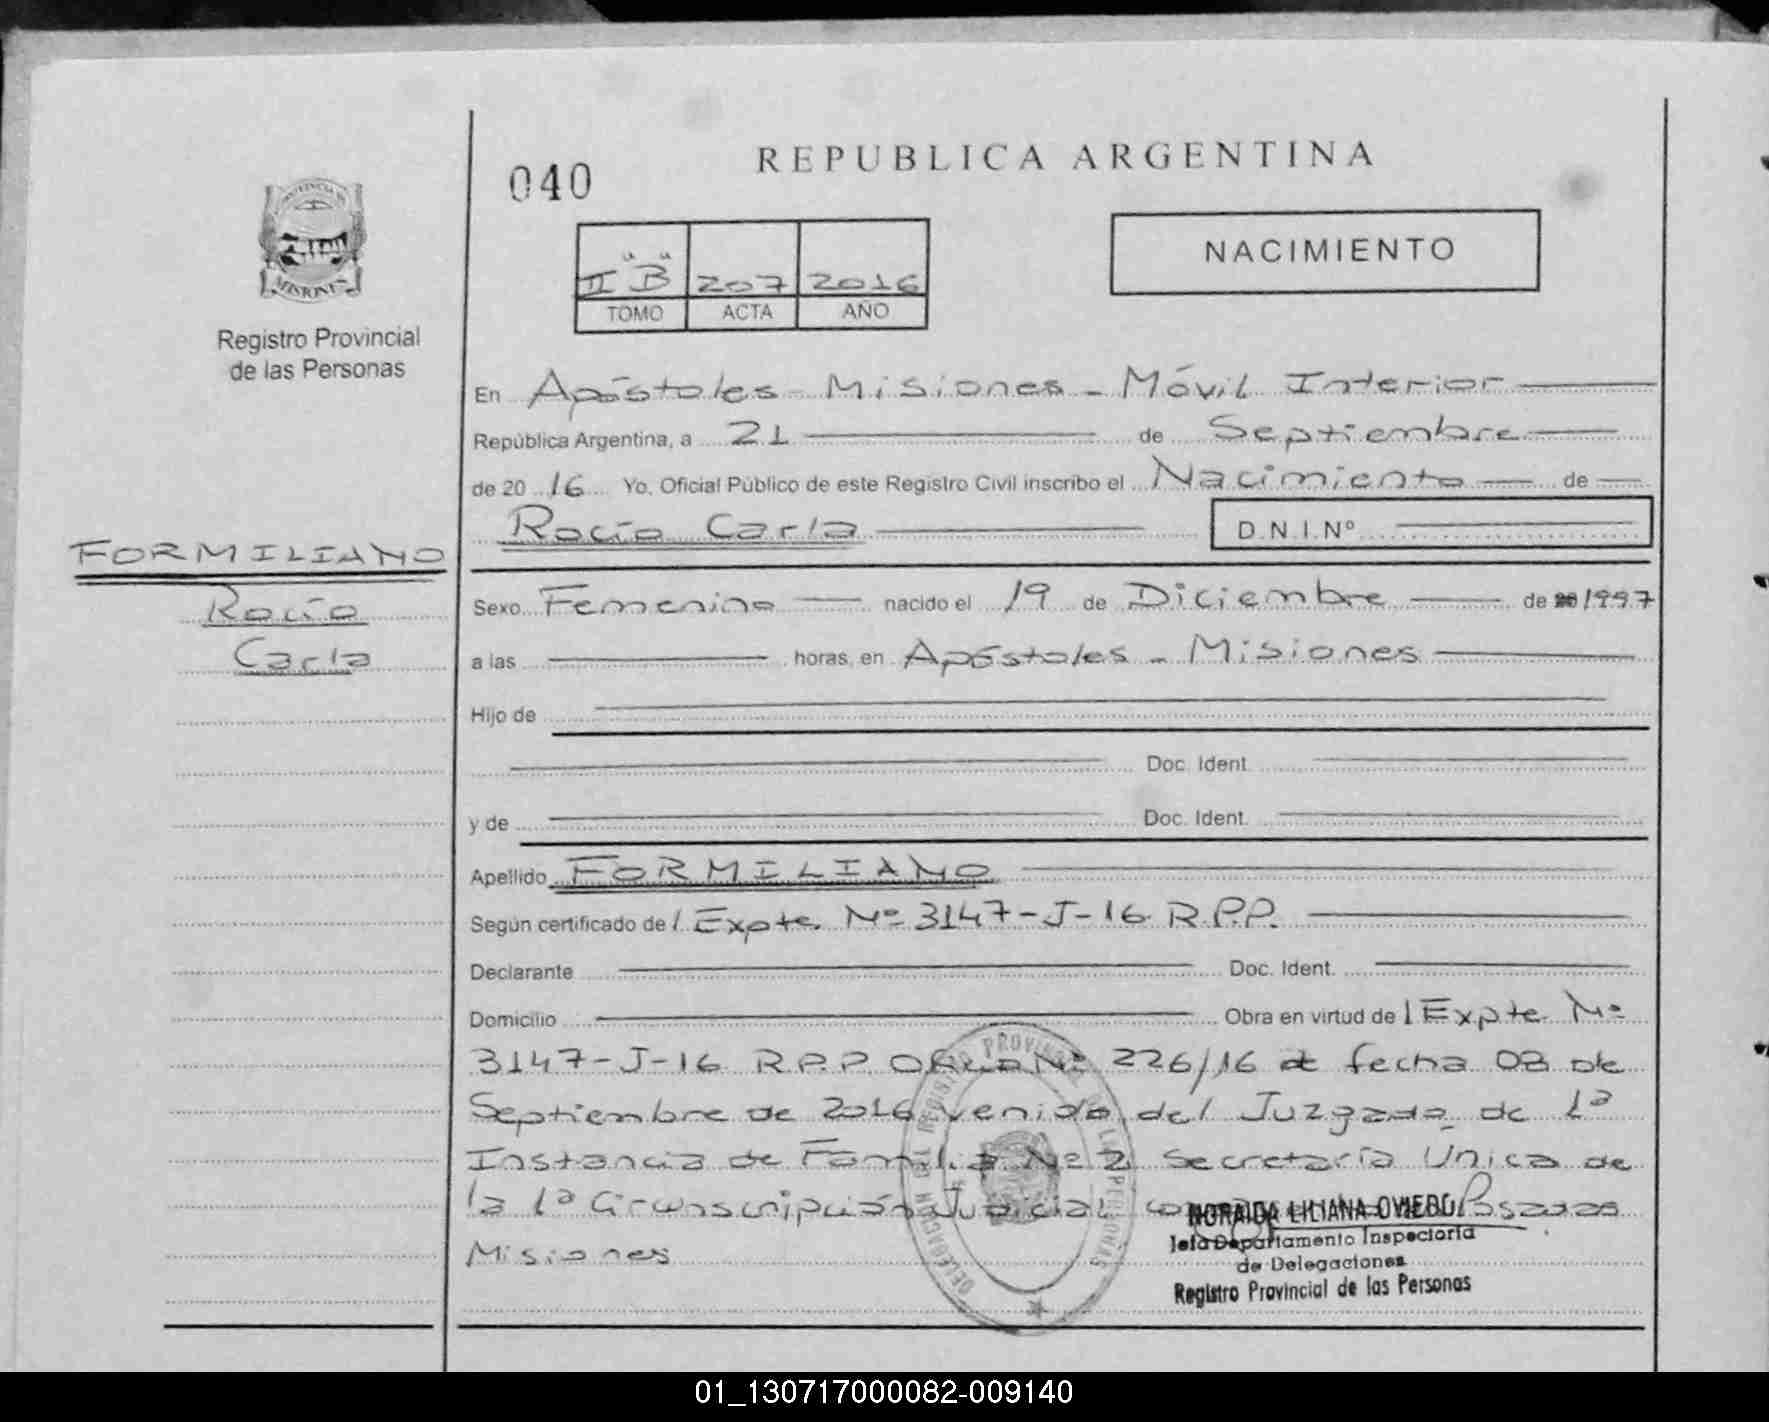 REPUBLICA ARGENTINA
040
NACIMIENTO
PROVINCIA DE
MISIONES
II "B" 207 2016
TOMO ACTA AÑO
Registro Provincial
de las Personas
En Apóstoles - Misiones - Móvil Interior
República Argentina, a 21 de Septiembre
de 20 16 Yo, Oficial Público de este Registro Civil inscribo el Nacimiento de
Rocío Carla D.N.I.Nº
FORMILIANO
Rocío
Carla
Sexo Femenino nacido el 19 de Diciembre de 1997
a las horas, en Apóstoles - Misiones
Hijo de
Doc. Ident.
y de Doc. Ident.
Apellido FORMILIANO
Según certificado de / Expte. Nº 3147-J-16 R.P.P.
Declarante Doc. Ident.
Domicilio Obra en virtud de / Expte. Nº
3147-J-16 R.P.P. Nº 226/16 de fecha 08 de
Septiembre de 2016 venido del Juzgado de 1ª
Instancia de Familia Nº 2 Secretaría Única de
la 1ª Circunscripción Judicial Posadas
Misiones
NORAIDA LILIANA OVIEDO
Jefa Departamento Inspectoría
de Delegaciones
Registro Provincial de las Personas
01_130717000082-009140